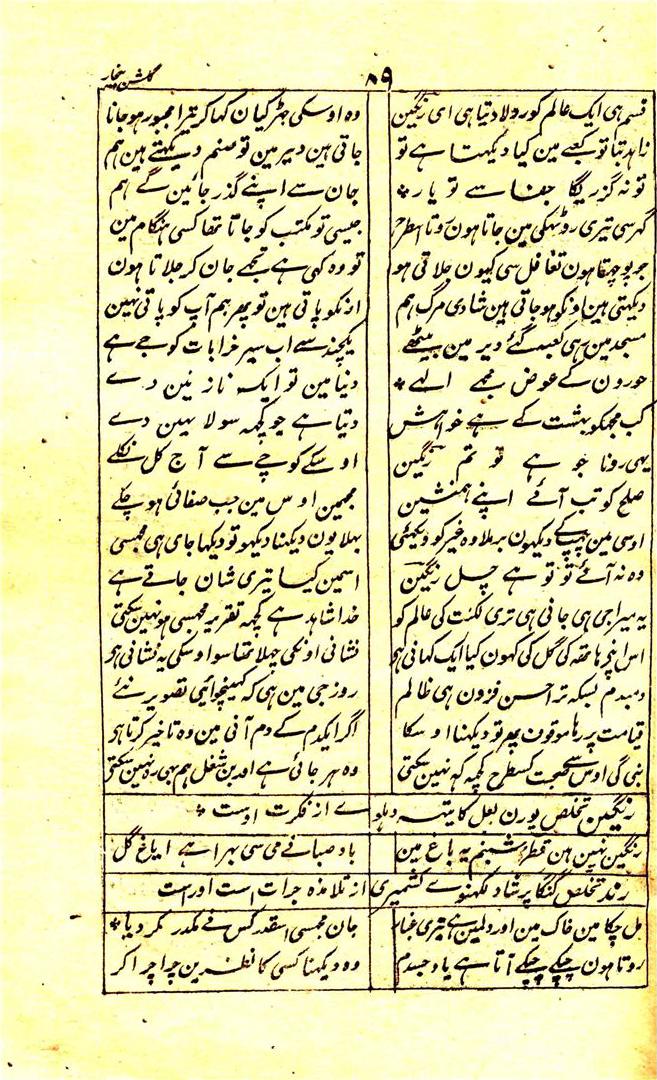 گلشن بیخار
۸۹
قسم ہی ایک عالم کو رولا دیتا ہی ای رنگین وہ اوسکی جھڑکیان کہا کر ترا مجبور ہو جانا
زاہد بتا تو کعبے مین کیا دیکھتا ہے تو جاتی ہین دیر مین تو صنم دیکھتے ہین ہم
تو نہ گزریگا جفا سے تو یار * جان سے اپنے گذر جائین گے ہم
گہر سی تیری روٹہکی مین جاتا ہون روتا اسطرح جیسی تو مکتب کو جاتا تھا کسی ہنگام مین
جو پوچہتا ہون تغافل سی کیون جلاتی ہو تو وہ کہی ہے تجھے جان کر جلاتا ہون
دیکہتی ہین اونکو ہو جاتی ہین شادی مرگ ہم اونکو پاتی ہین تو پھر ہم آپ کو پاتی نہین
مسجد مین رہی کعبہ گئے دیر مین بیٹھے یکچند سے اب سیر خرابات کو جے ہے
حورون کے عوض مجھے الہے * دنیا مین تو ایک نازنین دے
کب مجہکو بہشت کے ہے خواہش دیتا ہے جو کچہ سو لا یہین دے
یہی رونا جو ہے تو تم رنگین اوسکے کوچے سے آج کل نکلے
صلح کو تب آئے اپنے ہمنشین مجہمین اوس مین جب صفائی ہو چکے
اوسی مین چہپکے دیکہون برملا وہ غیر کو دیکہی بہلا یون دیکہنا دیکہو تو دیکہا جای ہی مجہسی
وہ نہ آئے تو تو ہے چل رنگین اسمین کیا تیری شان جاتے ہے
یہ میرا جی ہی جانی ہی تری لکنت کی عالم کو خدا شاہد ہے کچہہ تقریر مجہسی ہو نہین سکتی
اس اپنی ہاتھہ کی گل کی کہون کیا ایک کہانی ہی نشانی اونکی چہلا تہا سو اوسکی یہ نشانی ہی
دمبدم بسکہ ترا حسن فزون ہی ظالم روز جی مین ہی کہ کہینچوائیی تصویر نئے
قیامت پر رہا موقوف پھر تو دیکہنا اوسکا اگر ایکدم کے دم آنی مین وہ تاخیر کرتا ہی
بنی گی اوس سے صحبت کسطرح کچہہ کہہ نہین سکتی وہ ہر جائی ہے اور بن شغل ہم بہی رہ نہین سکتی
رنگین تخلص پورن لعل کایتہہ دہلوے از فکرت اوست *
رنگین نہین ہین قطرہ شبنم یہ باغ مین باد صبا نے می سی بہرا ہے ایاغ گل
رند تخلص گنگا پرشاد لکہنوے کشمیری از تلامذہ جرات است اوراست
مل چکا مین خاک مین اور دلمین ہے تیری غبار جان مجہسی اسقدر کس نے مکدر کر دیا *
روتا ہون چپکے چپکے آتا ہے یاد جسدم وہ دیکہنا کسی کا نظرین چرا چرا کر